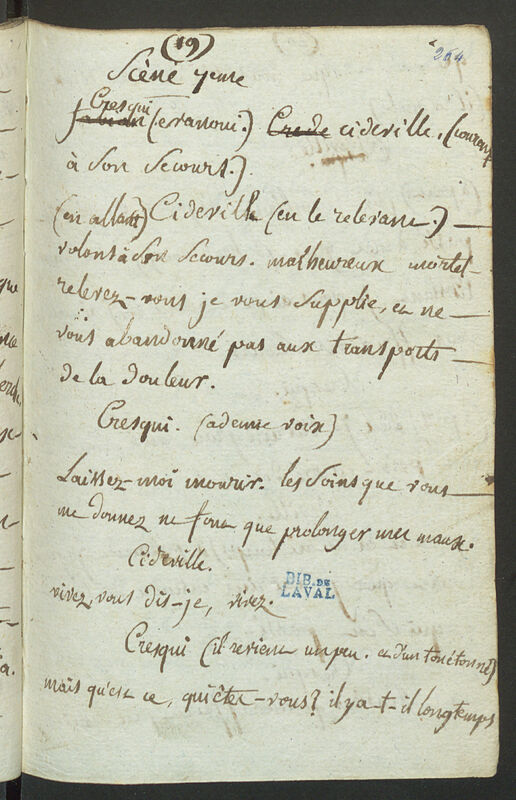 (19)
264
Scène 7eme
Cresqui
fabian (evanoui.) Crede cideville, (courant
à son secours.)
(en allant) Cideville (en le relevant.) —
volons à son secours. malheureux mortel
relevez-vous je vous supplie, et ne —
vous abandonné pas aux transports —
de la douleur.
Cresqui. (a demie voix)
Laissez-moi mourir. les soins que vous —
me donnez ne font que prolonger mes maux.
Cideville.
vivez, vous dis-je, vivez.
BIB. DE
LAVAL
Cresqui (il revient un peu. et d'un ton étonné)
mais qu'est ce, qui êtes-vous? il y a-t-il longtemps